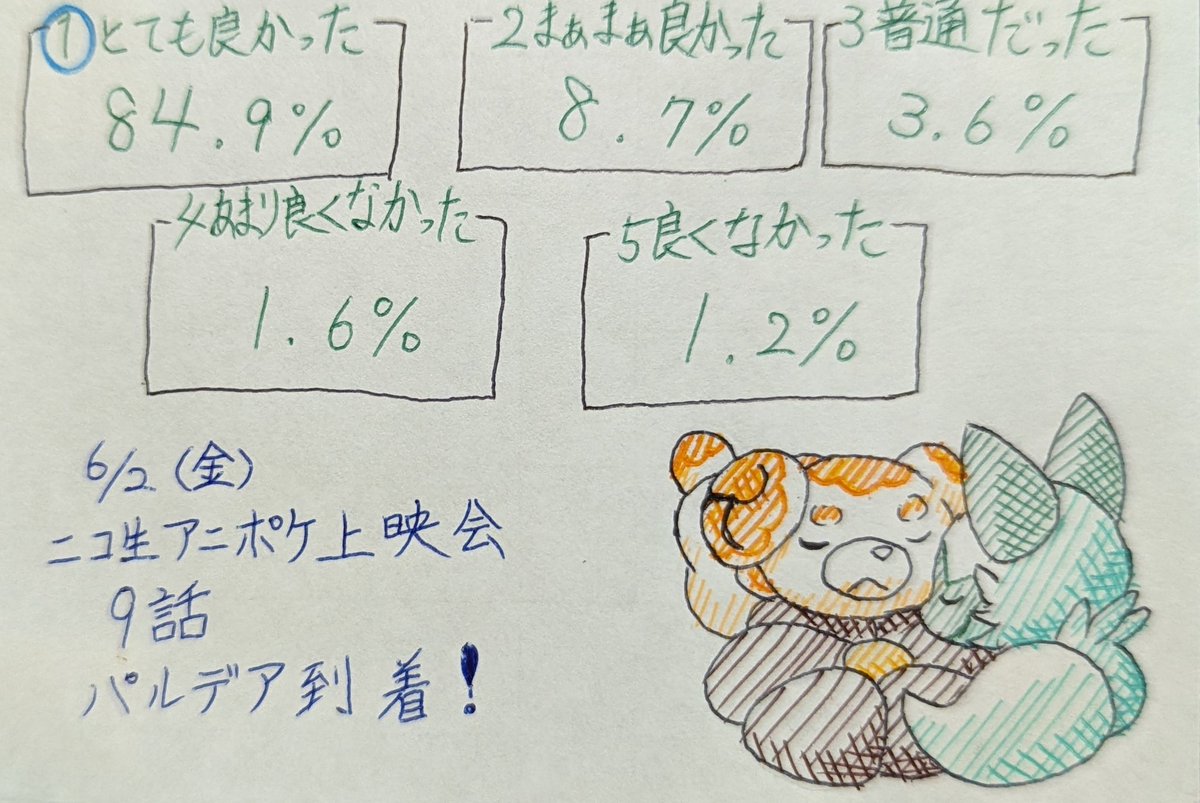 1とても良かった
84.9%
2まぁまぁ良かった
8.7%
3普通だった
3.6%
4あまり良くなかった
1.6%
5良くなかった
1.2%
6/2(金)
ニコ生アニポケ上映会
9話
パルデア到着!